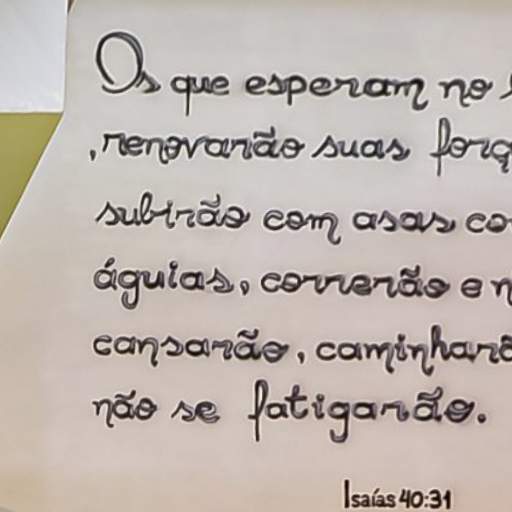 Os que esperam no
,renovarão suas forç
subirão com asas co
águias, correrão e n
cansarão, caminharã
não se fatigarão.
Isaías 40:31